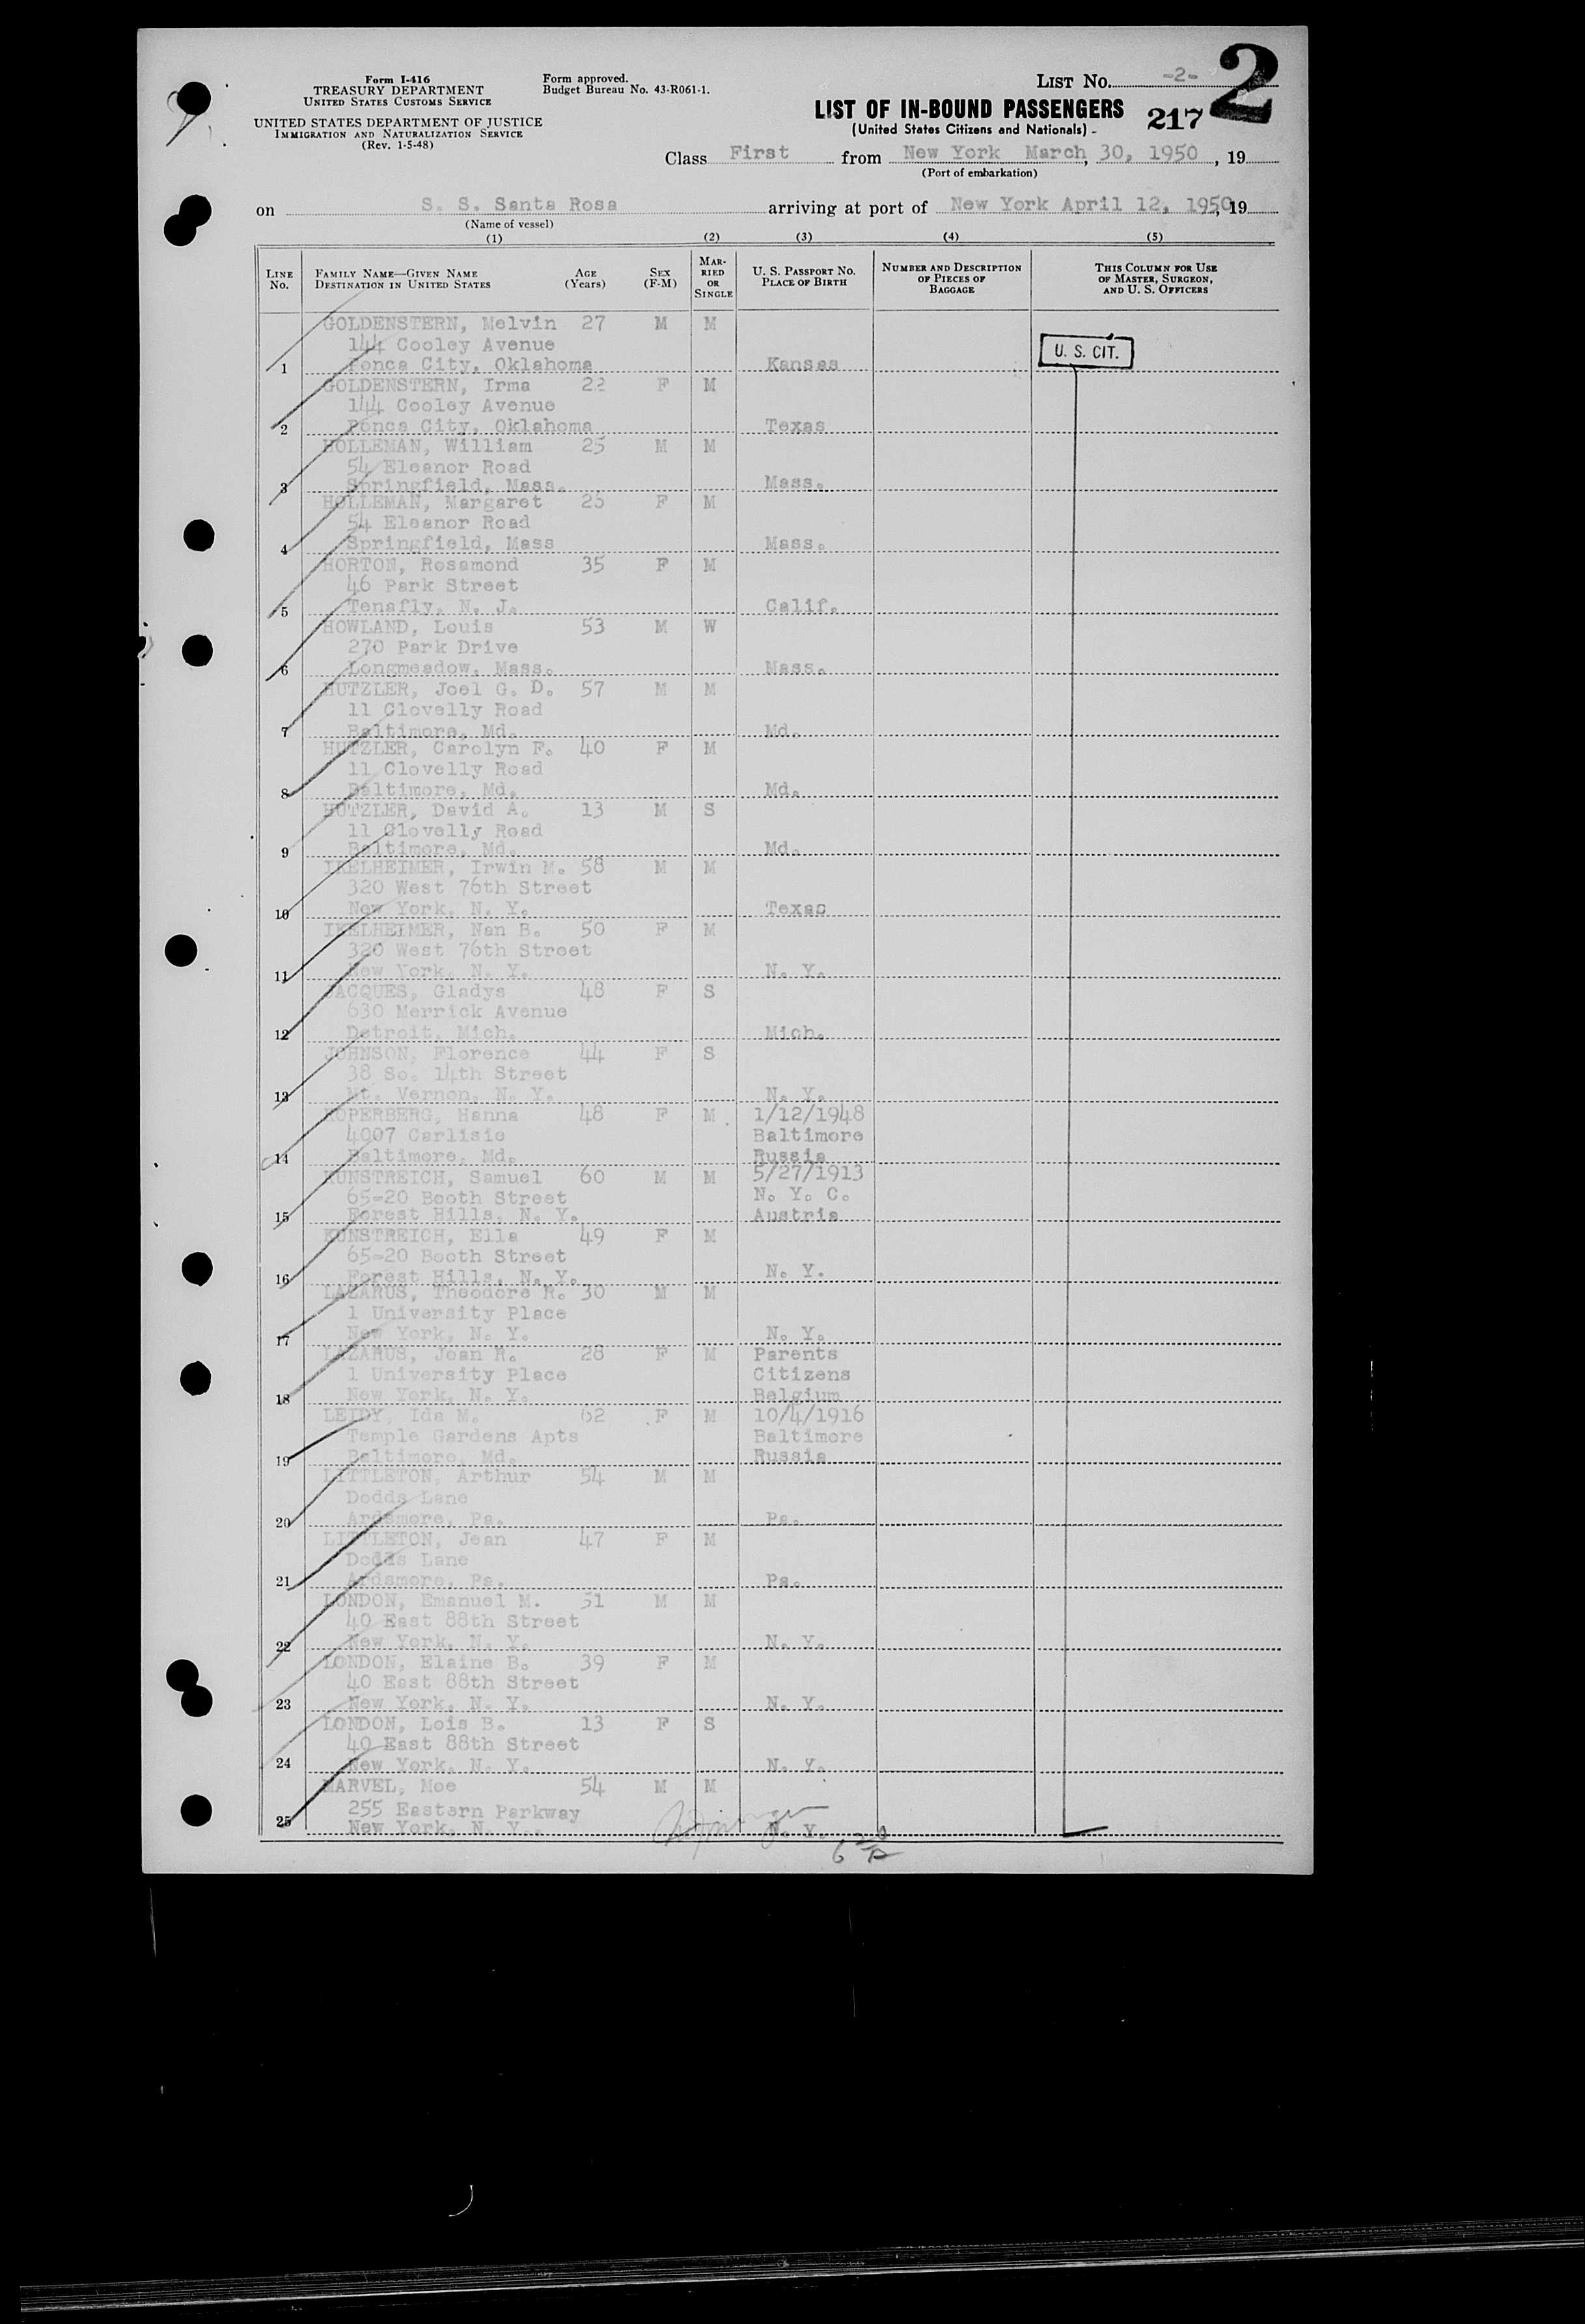 Form I-416
TREASURY DEPARTMENT
UNITED STATES CUSTOMS SERVICE
UNITED STATES DEPARTMENT OF JUSTICE
IMMIGRATION AND NATURALIZATION SERVICE
(Rev. 1-5-48)
Form approved.
Budget Bureau No. 43-R061-1.
LIST No. -2-
2
LIST OF IN-BOUND PASSENGERS
(United States Citizens and Nationals)
217
Class First from New York March, 30, 1950, 19
(Port of embarkation)
on S. S. Santa Rosa arriving at port of New York April 12, 1950, 19
(Name of vessel)
(1) (2) (3) (4) (5)
LINE No. FAMILY NAME—GIVEN NAME DESTINATION IN UNITED STATES AGE (Years) SEX (F-M) MARRIED OR SINGLE U. S. PASSPORT NO. PLACE OF BIRTH NUMBER AND DESCRIPTION OF PIECES OF BAGGAGE THIS COLUMN FOR USE OF MASTER, SURGEON, AND U. S. OFFICERS
GOLDENSTERN, Melvin 27 M M
144 Cooley Avenue
1 Ponca City, Oklahoma Kansas U. S. CIT.
GOLDENSTERN, Irma 22 F M
144 Cooley Avenue
2 Ponca City, Oklahoma Texas
HOLLEMAN, William 25 M M
54 Eleanor Road
3 Springfield, Mass. Mass.
HOLLEMAN, Margaret 25 F M
54 Eleanor Road
4 Springfield, Mass Mass.
HORTON, Rosamond 35 F M
46 Park Street
5 Tenafly, N. J. Calif.
HOWLAND, Louis 53 M W
270 Park Drive
6 Longmeadow, Mass. Mass.
HUTZLER, Joel G. D. 57 M M
11 Clovelly Road
7 Baltimore, Md. Md.
HUTZLER, Carolyn F. 40 F M
11 Clovelly Road
8 Baltimore, Md. Md.
HUTZLER, David A. 13 M S
11 Clovelly Road
9 Baltimore, Md. Md.
IKELHEIMER, Irwin M. 58 M M
320 West 76th Street
10 New York, N. Y. Texas
IKELHEIMER, Nan B. 50 F M
320 West 76th Street
11 New York, N. Y. N. Y.
JACQUES, Gladys 48 F S
630 Merrick Avenue
12 Detroit, Mich. Mich.
JOHNSON, Florence 44 F S
38 So. 14th Street
13 Mt. Vernon, N. Y. N. Y.
KOPERBERG, Hanna 48 F M 1/12/1948
4007 Carlisle Baltimore
14 Baltimore, Md. Russia
KUNSTREICH, Samuel 60 M M 5/27/1913
65-20 Booth Street N. Y. C.
15 Forest Hills, N. Y. Austria
KUNSTREICH, Ella 49 F M
65-20 Booth Street
16 Forest Hills, N. Y. N. Y.
LAZARUS, Theodore R. 30 M M
1 University Place
17 New York, N. Y. N. Y.
LAZARUS, Joan R. 28 F M Parents
1 University Place Citizens
18 New York, N. Y. Belgium
LEIDY, Ida M. 62 F M 10/4/1916
Temple Gardens Apts Baltimore
19 Baltimore, Md. Russia
LITTLETON, Arthur 54 M M
Dodds Lane
20 Ardsmore, Pa. Pa.
LITTLETON, Jean 47 F M
Dodds Lane
21 Ardsmore, Pa. Pa.
LONDON, Emanuel M. 51 M M
40 East 88th Street
22 New York, N. Y. N. Y.
LONDON, Elaine B. 39 F M
40 East 88th Street
23 New York, N. Y. N. Y.
LONDON, Lois B. 13 F S
40 East 88th Street
24 New York, N. Y. N. Y.
MARVEL, Moe 54 M M
255 Eastern Parkway
25 New York, N. Y. N. Y.